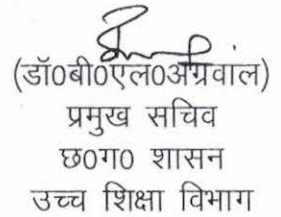 (डॉ0बी0एल0अग्रवाल)
प्रमुख सचिव
छ0ग0 शासन
उच्च शिक्षा विभाग